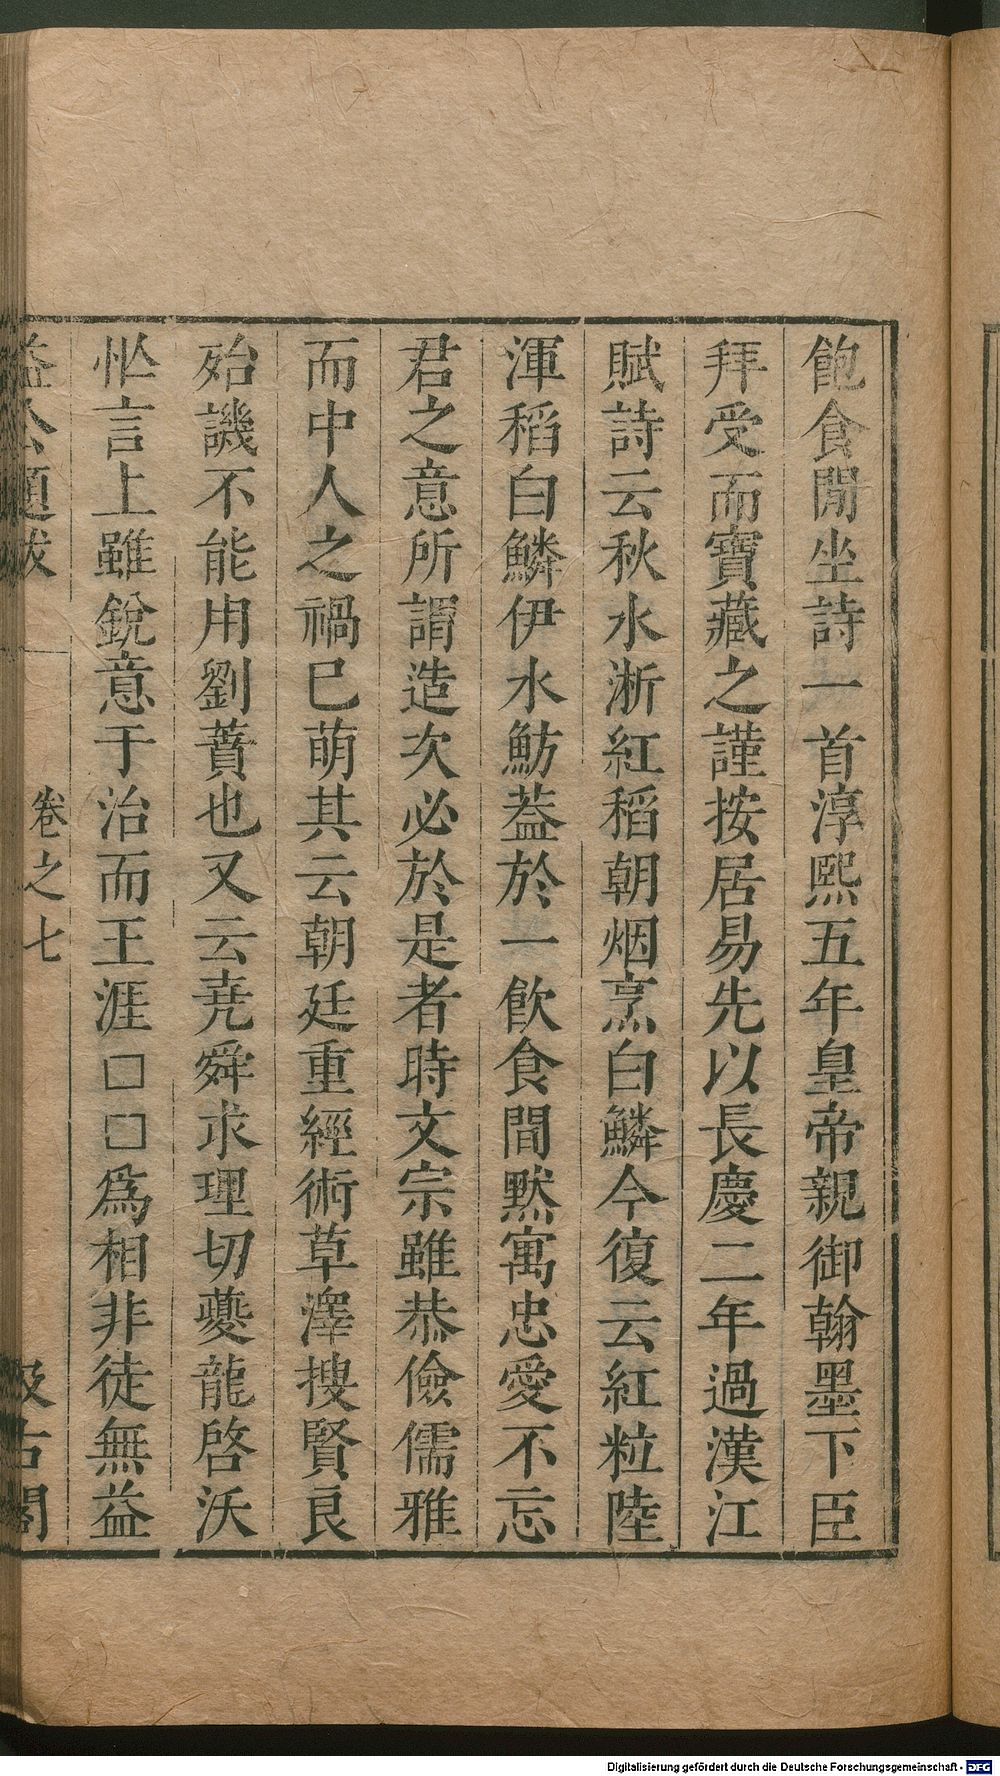 飽食閒坐詩一首淳熙五年皇帝親御翰墨下臣
拜受而寶藏之謹按居易先以長慶二年過漢江
賦詩云秋水淅紅稻朝烟烹白鱗今復云紅粒陸
渾稻白鱗伊水魴葢於一飲食間默寓忠愛不忘
君之意所謂造次必於是者時文宗雖恭儉儒雅
而中人之禍巳萌其云朝廷重經術草澤搜賢良
殆譏不能用劉蕡也又云堯舜求理切夔龍啓沃
忙言上雖銳意于治而王涯□□爲相非徒無益
益公題跋
卷之七
汲古閣
Digitalisierung gefördert durch die Deutsche Forschungsgemeinschaft - DFG